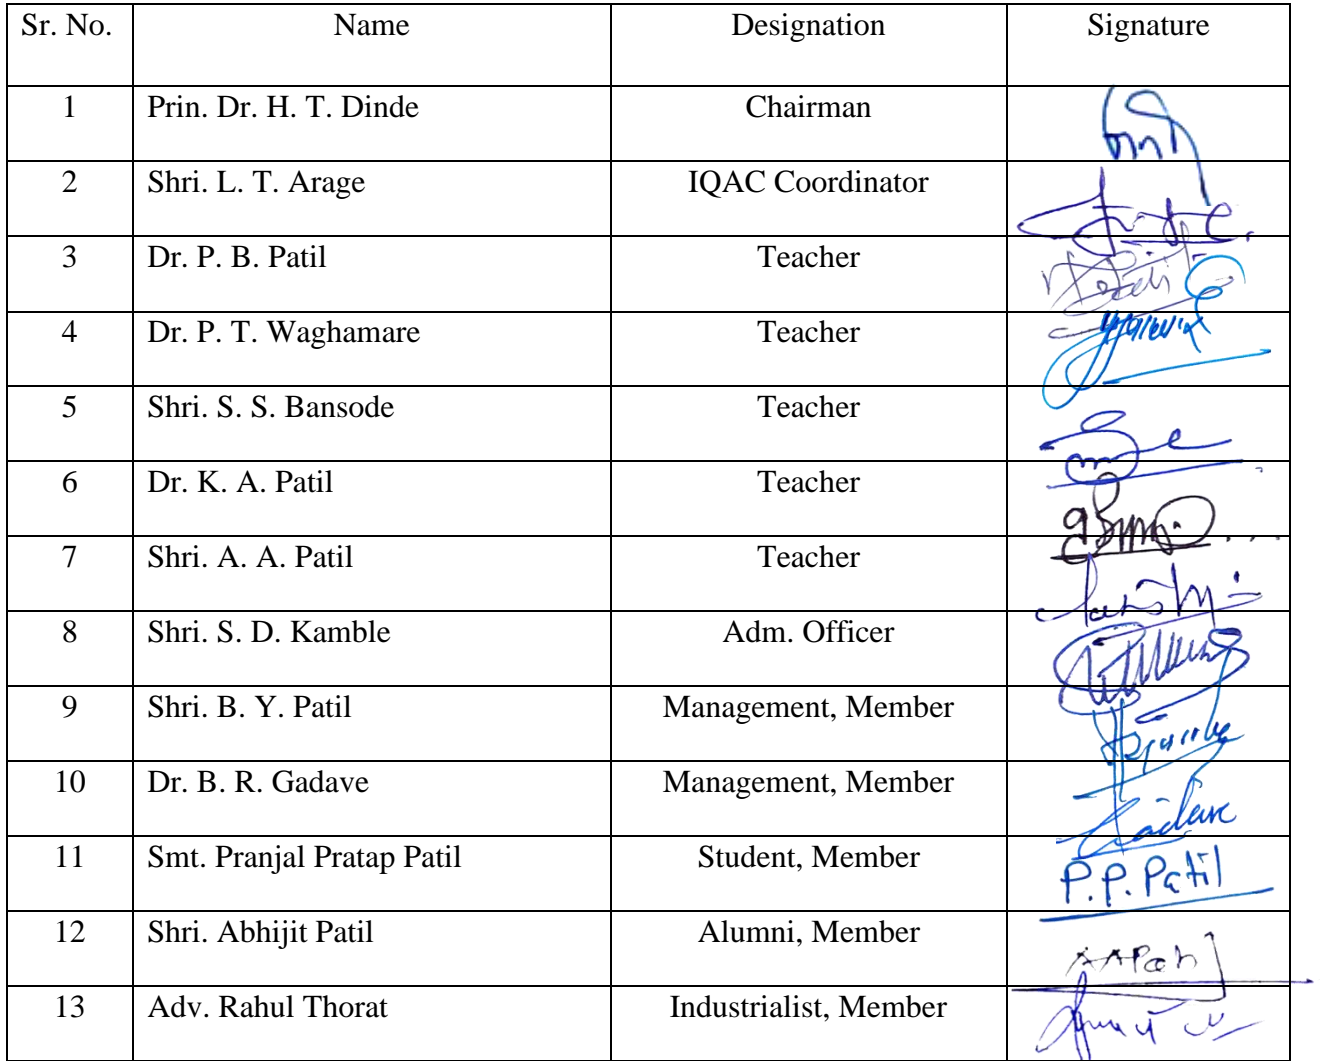 Sr. No. Name Designation Signature
1 Prin. Dr. H. T. Dinde Chairman
2 Shri. L. T. Arage IQAC Coordinator
3 Dr. P. B. Patil Teacher
4 Dr. P. T. Waghamare Teacher
5 Shri. S. S. Bansode Teacher
6 Dr. K. A. Patil Teacher
7 Shri. A. A. Patil Teacher
8 Shri. S. D. Kamble Adm. Officer
9 Shri. B. Y. Patil Management, Member
10 Dr. B. R. Gadave Management, Member
11 Smt. Pranjal Pratap Patil Student, Member P.P. Patil
12 Shri. Abhijit Patil Alumni, Member
13 Adv. Rahul Thorat Industrialist, Member